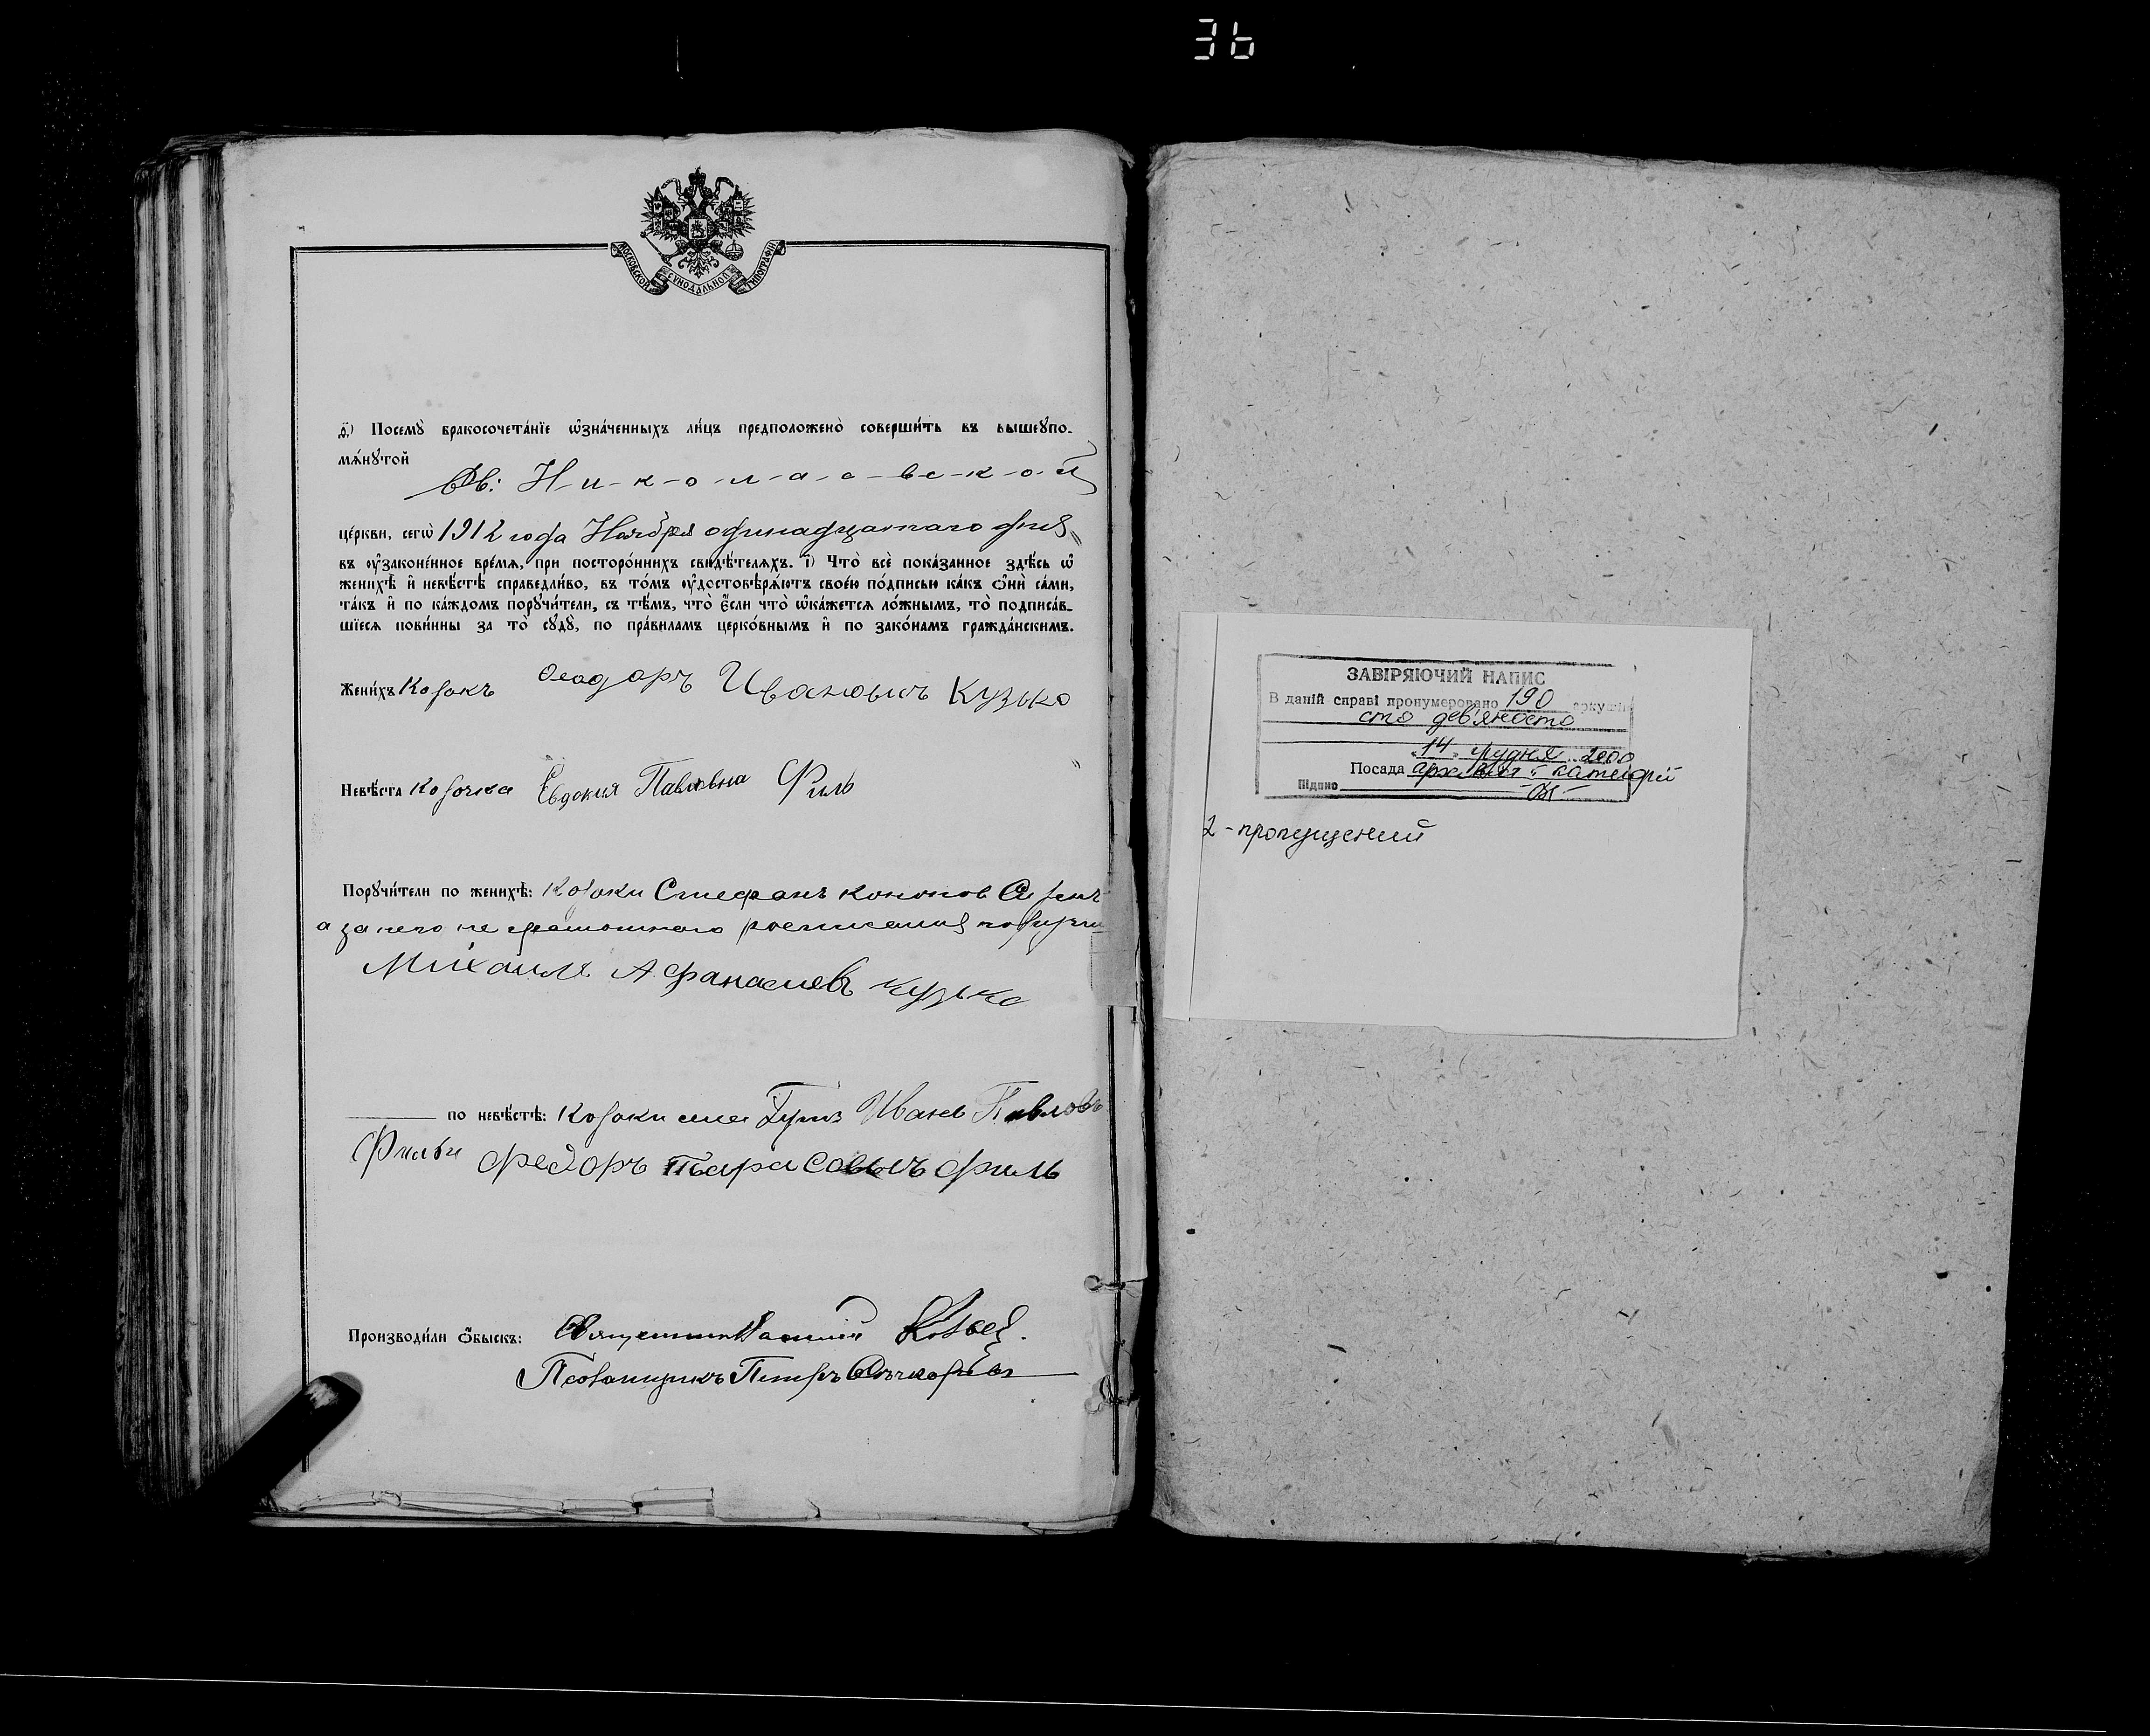 36
МОСКОВСКОЙ СѴНОДАЛЬНОЙ ТИПОГРАФІИ
д҃і) Посемꙋ̀ бракосочета́нїе ѡ҆зна́ченныхъ ли́цъ предположено̀ соверши́ть въ вышеꙋпо-
мѧ́нꙋтой
Св: Н-и-к-о-л-а-е-в-с-к-о-й
це́ркви, сегѡ̀ 1912 года Ноября одинадцатаго дня
въ ᲂу҆законе́нное вре́мѧ, при посторо́ннихъ свидѣ́телѧхъ. і҃) Что̀ всѐ пока́занное здѣ́сь ѡ҆
женихѣ̀ и҆ невѣ́стѣ справедли́во, въ то́мъ ᲂу҆достовѣрѧ́ютъ свое́ю по́дписью ка́къ ѻ҆нѝ са́ми,
та́къ и҆ по ка́ждомъ порꙋчи́тели, съ тѣ́мъ, что̀ є҆́сли что̀ ѡ҆ка́жетсѧ ло́жнымъ, то̀ подписа́в-
шїесѧ пови́нны за то̀ сꙋдꙋ̀, по пра́виламъ церко́внымъ и҆ по зако́намъ гражда́нскимъ.
Жени́хъ Козакъ Феодоръ Ивановичъ Кузько
Невѣ́ста Козачка Евдокия Павловна Филь
Порꙋчи́тели по женихѣ̀: Козаки Стефанъ Кононов
а за него не грамотнаго росписался
Михаилъ Афанасиевъ Кузько
по невѣ́стѣ: Козаки Иванъ Павловъ
Филь Федоръ Тарасовичъ Филь
Производи́ли ѻ҆́быскъ: Священник Василій
Псаломщикъ Петръ
ЗАВІРЯЮЧИЙ НАПИС
В даній справі пронумеровано 190 аркушів
сто дев'яносто
"14" грудня 2000
Посада архівіст II категорії
Підпис
2 - пропущений